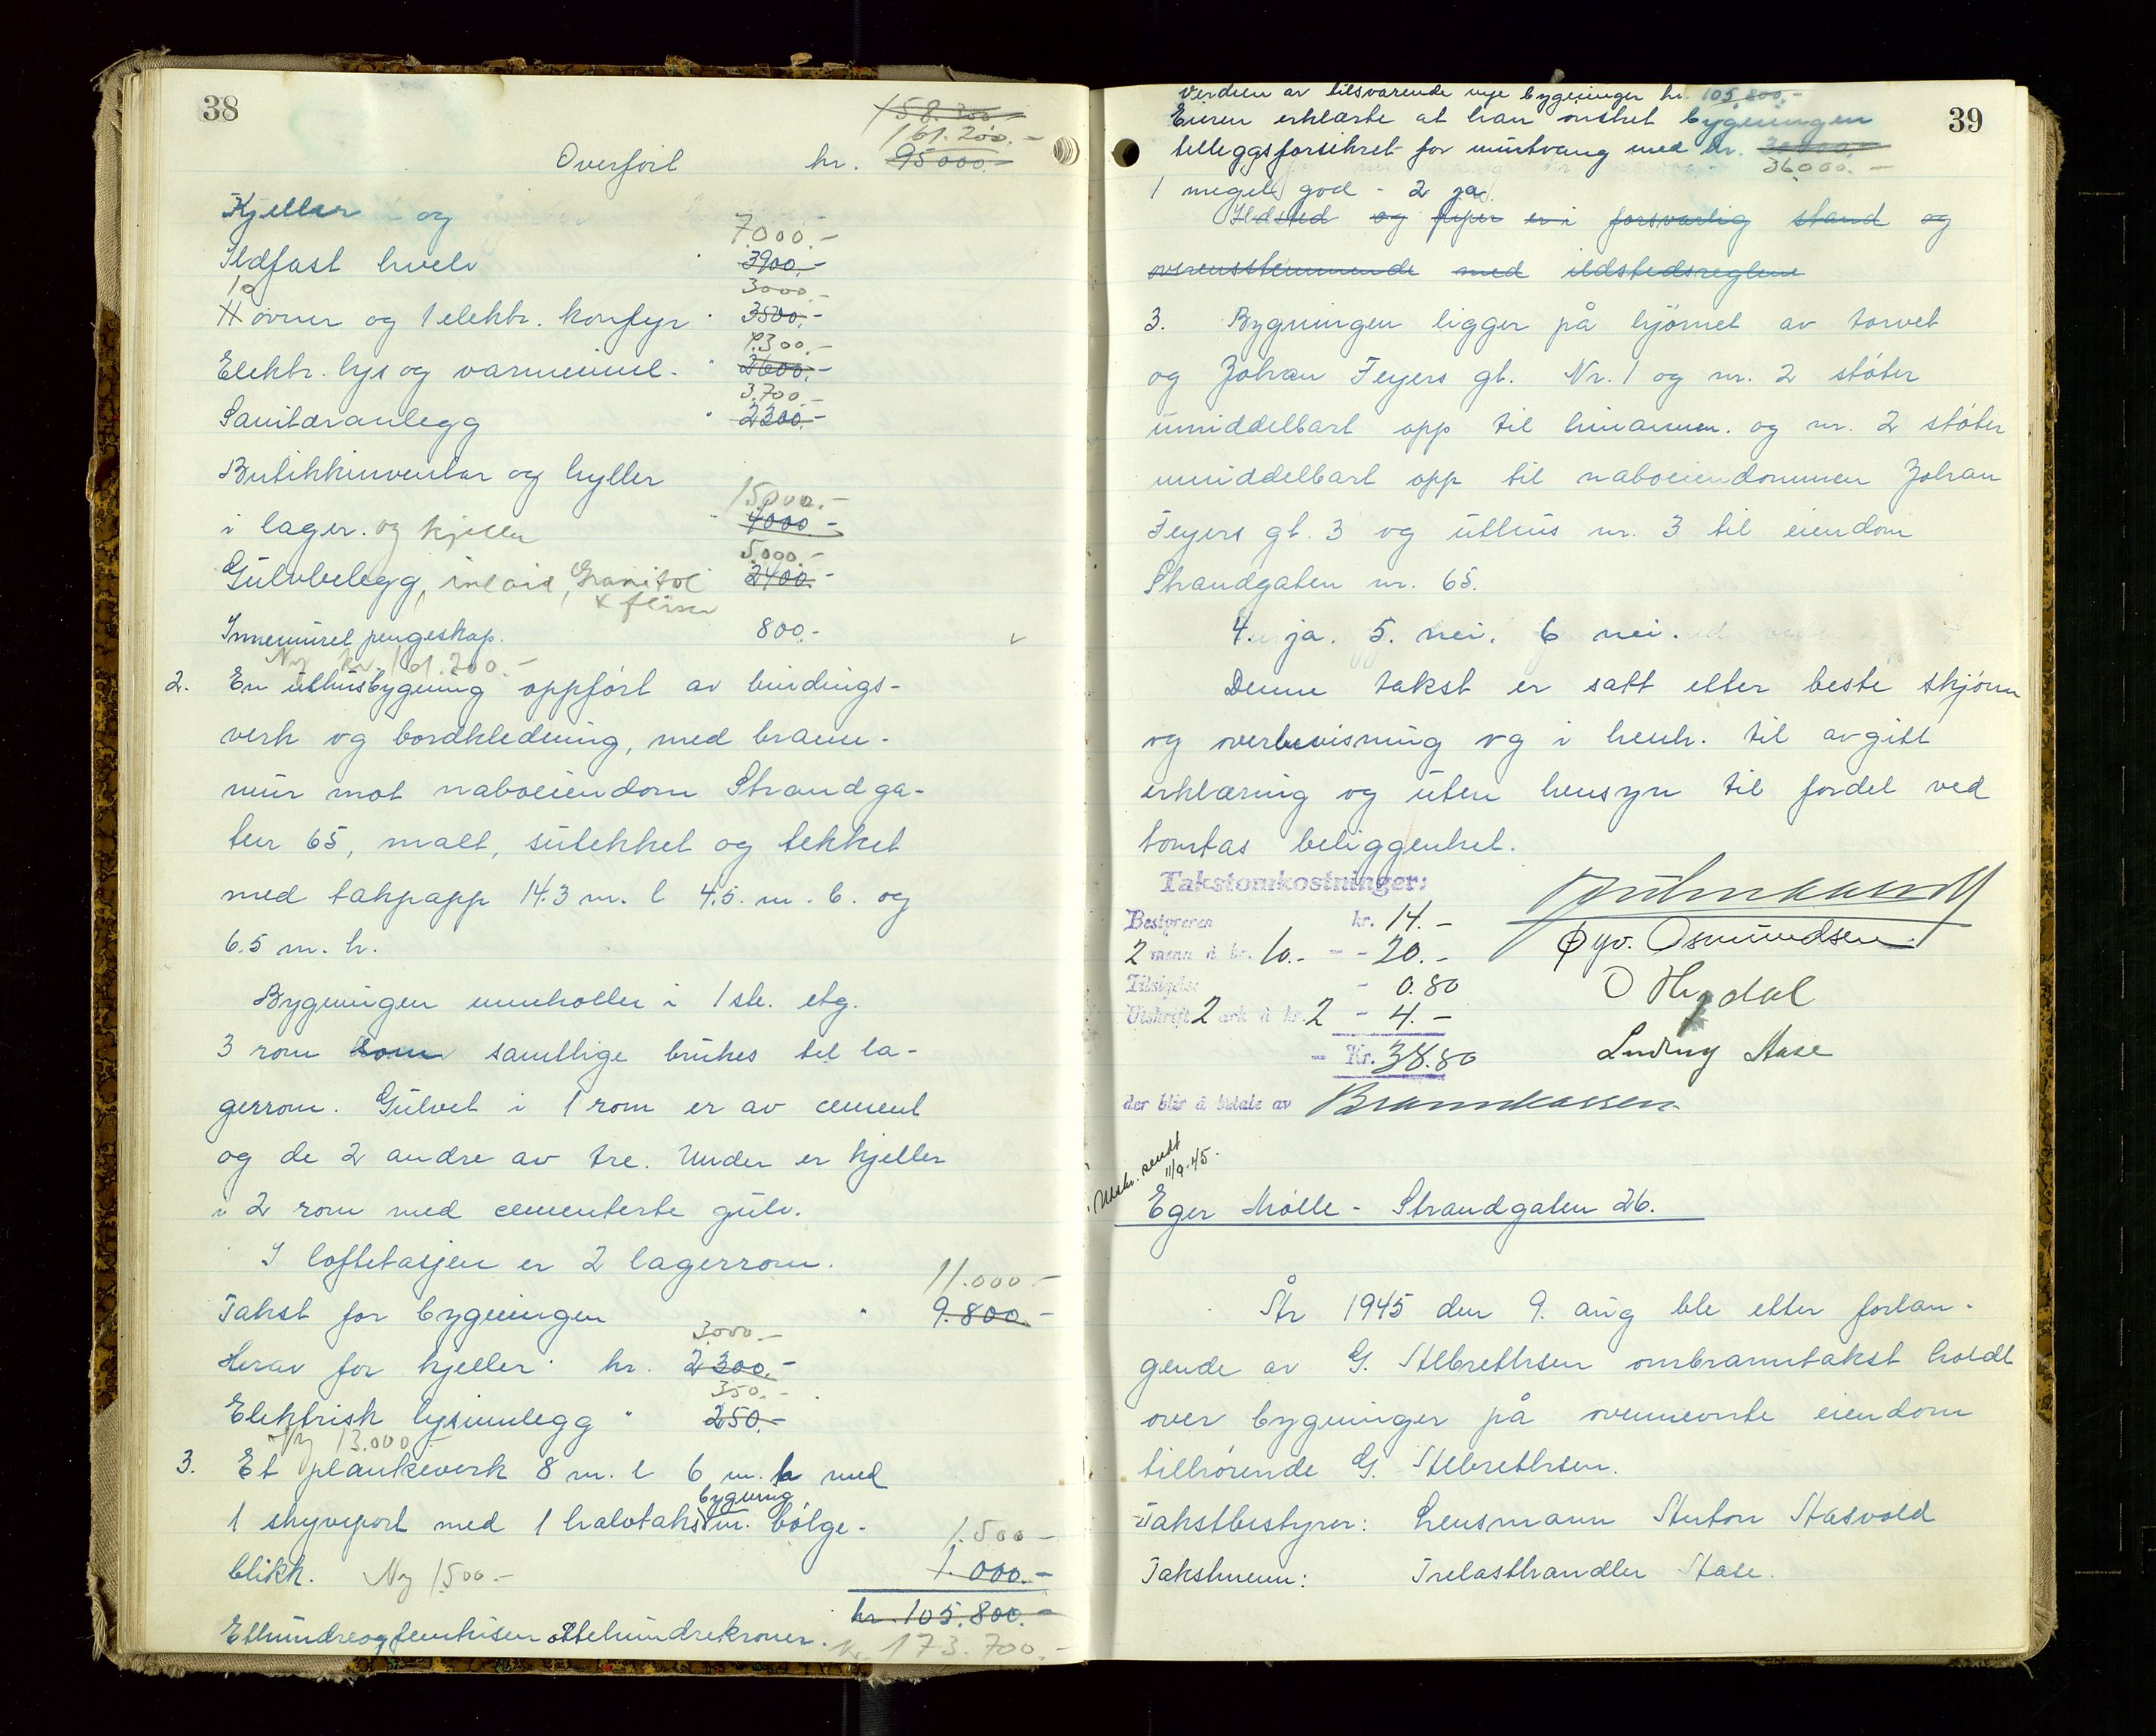 38
158.300
161.200.-
Overført kr. 95000.-
Kjeller og
7.000.-
Ildfast hvelv " 3900.-
10 3000.-
11 ovner og 1 elektr. komfyr " 3500.-
4.300.-
Elektr. lys og varmeinnl. " 2600.-
3.700.-
Sanitæranlegg " 2300.-
Butikkinventar og hyller
15.000.-
i lager. og kjeller " 4000.-
5.000.-
Gulvbelegg, inlaid, Granitol 2400.-
+ fliser
Innemuret pengeskap. 800.-
Ny kr. 161.200.-
2. En uthusbygning oppført av bindings-
verk og bordkledning, med brann-
mur mot naboeiendom Strandga-
ten 65, malt, sutekket og tekket
med takpapp 14.3 m. l 4.5. m. b. og
6.5 m. h.
Bygningen inneholler i 1ste. etg.
3 rom som samtlige brukes til la-
gerrom. Gulvet i 1 rom er av cement
og de 2 andre av tre. Under er kjeller
i 2 rom med cementerte gulv.
I loftetasjen er 2 lagerrom.
11.000.-
Takst for bygningen " 9.800.-
3000.-
Herav for kjeller kr. 2300.-
350.-
Elektrisk lysinnlegg " 250.-
Ny 13.000.-
3. Et plankeverk 8 m. l 6 m. h med
bygning
1 skyveport med 1 halvtaks m. bølge-
1.500-
blikk. Ny 1500.- 1.000.-
kr. 105.800.-
Etthundreogfemtusen åttehundrekroner.
kr. 173.700.-
39
Verdien av tilsvarende nye bygninger kr. 105.800.-
Eieren erklærte at han ønsket bygningen
tilleggsforsikret for murtvang med kr. 30000.-
36.000.-
1 meget god - 2 ja.
Ildsted og piper er i forsvarlig stand og
overensstemmende med ildstedsreglene
3. Bygningen ligger på hjørnet av torvet
og Johan Feyers gt. Nr. 1 og nr. 2 støter
umiddelbart opp til hinannen. og nr. 2 støter
umiddelbart opp til naboeiendommen Johan
Feyers gt. 3 og uthus nr. 3 til eiendom
Strandgaten nr. 65.
4. ja. 5. nei. 6 nei.
Denne takst er satt etter beste skjønn
og overbevisning og i henh. til avgitt
erklæring og uten hensyn til fordel ved
tomtas beliggenhet.
Takstomkostninger:
Bestyreren kr. 14.-
Øyv. Osmundsen.
2 menn à kr. 10.- - - 20.-
Tilsigelse - 0.80
O Hegdal
Utskrift 2 ark à kr. 2 - 4.-
- Kr. 38.80
Ludvig Aase
der blir å betale av Brannkassen
Utskr. sendt
11/9-45.
Eger Mølle - Strandgaten 26.
År 1945 den 9. aug ble etter forlan-
gende av G. Albrethsen ombranntakst holdt
over bygninger på ovennevnte eiendom
tilhørende G. Albrethsen.
Takstbestyrer: Lensmann Anton Aasvold
Takstmenn: Trelasthandler Aase.